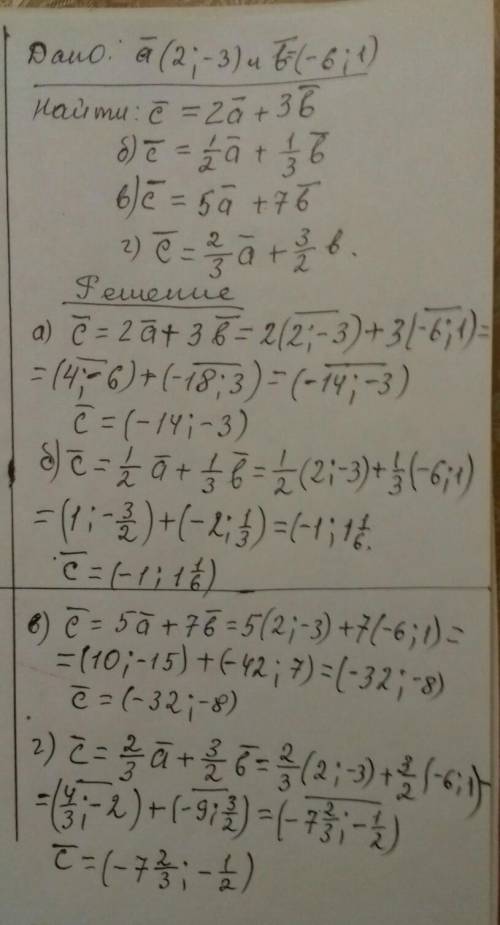 Дано: a̅(2;-3) и b̅=(-6;1)
Найти: c̅ = 2a̅ + 3b̅
б) c̅ = 1/2 a̅ + 1/3 b̅
в) c̅ = 5a̅ + 7b̅
г) c̅ = 2/3 a̅ + 3/2 b.
Решение
а) c̅ = 2a̅ + 3b̅ = 2(2;-3) + 3(-6;1) =
= (4;-6) + (-18;3) = (-14;-3)
c̅ = (-14;-3)
б) c̅ = 1/2 a̅ + 1/3 b̅ = 1/2 (2;-3) + 1/3 (-6;1)
= (1;-3/2) + (-2;1/3) = (-1; 1 1/6.
c̅ = (-1; 1 1/6)
в) c̅ = 5a̅ + 7b̅ = 5(2;-3) + 7(-6;1) =
= (10;-15) + (-42;7) = (-32;-8)
c̅ = (-32;-8)
г) c̅ = 2/3 a̅ + 3/2 b̅ = 2/3 (2;-3) + 3/2 (-6;1) =
= (4/3;-2) + (-9;3/2) = (-7 2/3;-1/2)
c̅ = (-7 2/3; -1/2)